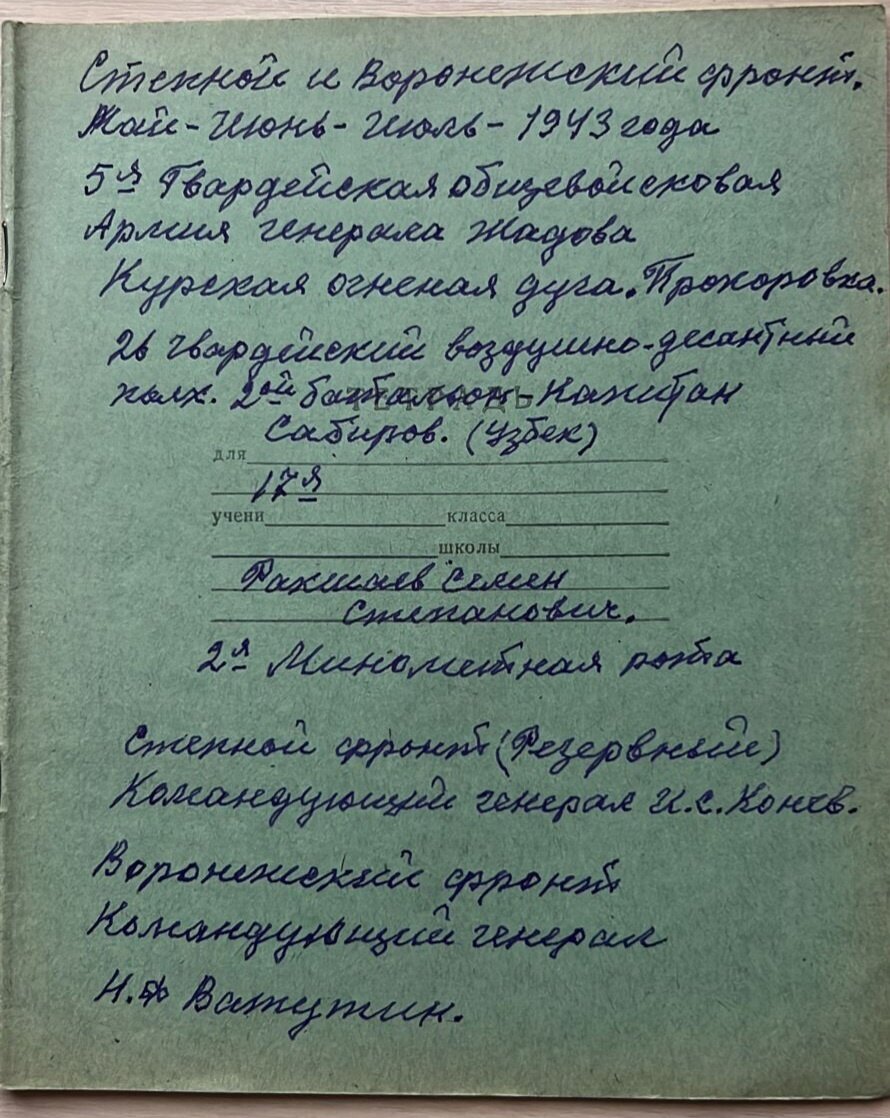 Степной и Воронежский фронт.
Май-Июнь-Июль-1943 года
5я Гвардейская общевойсковая
Армия генерала Жадова
Курская огненая дуга. Прохоровка.
26 гвардейский воздушно-десантный
полк. 2ой батальон-Капитан
ТЕТРАДЬ
Сабиров. (Узбек)
для
17я
учени класса
школы
Рахмаев Семен
Степанович.
2я Минометная рота
Степной фронт (Резервный)
Командующий генерал И.С. Конев.
Воронежский фронт
Командующий генерал
Н.Ф Ватутин.